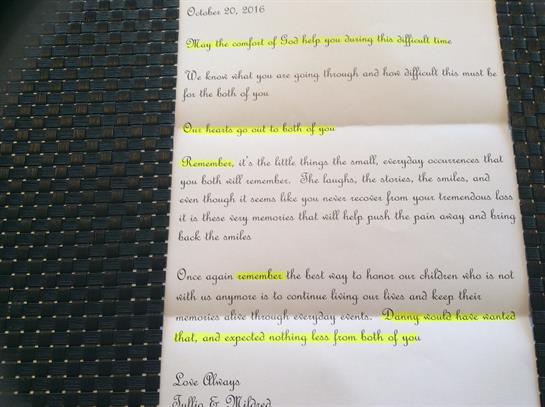 October 20, 2016
May the comfort of God help you during this difficult time
We know what you are going through and how difficult this must be
for the both of you
Our hearts go out to both of you
Remember, it's the little things the small, everyday occurrences that
you both will remember. The laughs, the stories, the smiles, and
even though it seems like you never recover from your tremendous loss
it is these very memories that will help push the pain away and bring
back the smiles
Once again remember the best way to honor our children who is not
with us anymore is to continue living our lives and keep their
memories alive through everyday events. Danny would have wanted
that, and expected nothing less from both of you
Love Always
Tullio & Mildred